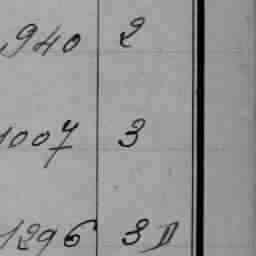 940 2
1007 3
1296 3 D